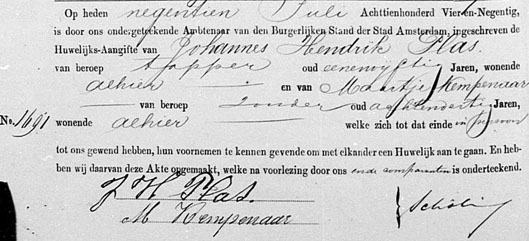 Op heden negentien Juli Achttienhonderd Vier-en-Negentig,
is door ons ondergeteekende Ambtenaar van den Burgerlijken Stand der Stad Amsterdam, ingeschreven de
Huwelijks-Aangifte van Johannes Hendrik Plas
van beroep tapper oud eenenvijftig Jaren, wonende
alhier en van Maartje Kempenaar
van beroep zonder oud achtendertig Jaren,
No. 1691 wonende alhier welke zich tot dat einde in persoon
tot ons gewend hebben, hun voornemen te kennen gevende om met elkander een Huwelijk aan te gaan. En heb-
ben wij daarvan deze Akte opgemaakt, welke na voorlezing door ons en de comparanten is onderteekend.
J H Plas.
M Kempenaar